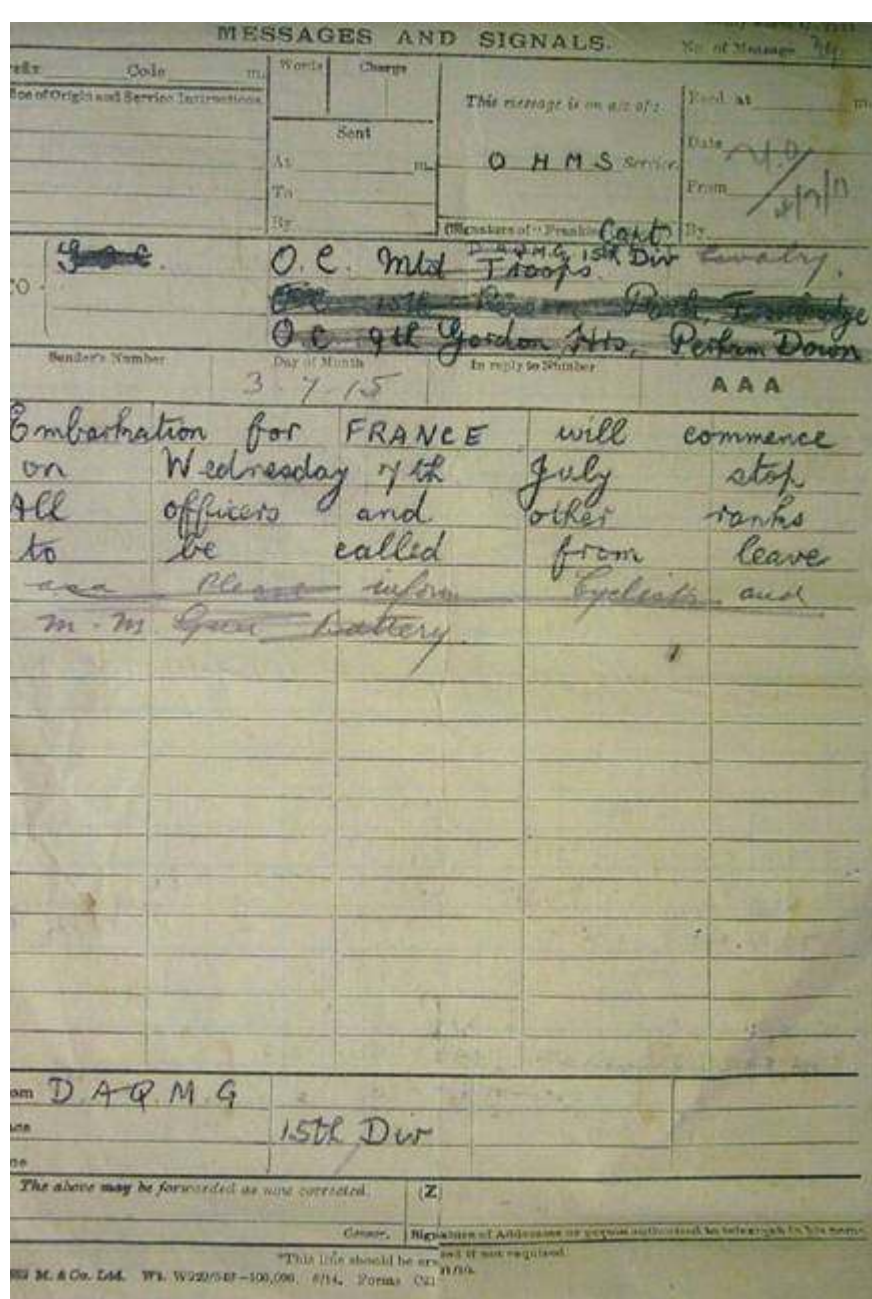 MESSAGES AND SIGNALS.
No. of Message
Code m. Words Charge
ce of Origin and Service Instructions.
This message is on a/c of:
Recd. at m.
Sent
Date
At m.
O H M S Service.
To
From
By
(Signature of "Franking Capt
By
D A Q M G 15th Div
TO
O. C. Mtd Troops. Cavalry.
O.C 9th Gordon Hrs, Perham Down
Sender's Number Day of Month In reply to Number
3 . 7 . 15 AAA
Embarkation for FRANCE will commence
on Wednesday 7th July stop
All officers and other ranks
to be called from leave
aaa Please inform Cyclists and
m. m. Gun battery.
om D A Q. M. G
15th Div
The above may be forwarded as now corrected. (Z)
Censor. Signature of Addressor or person authorised to telegraph in his name
*This line should be erased if not required.
M. & Co. Ltd. Wt. W229/549—100,000. 6/14. Forms